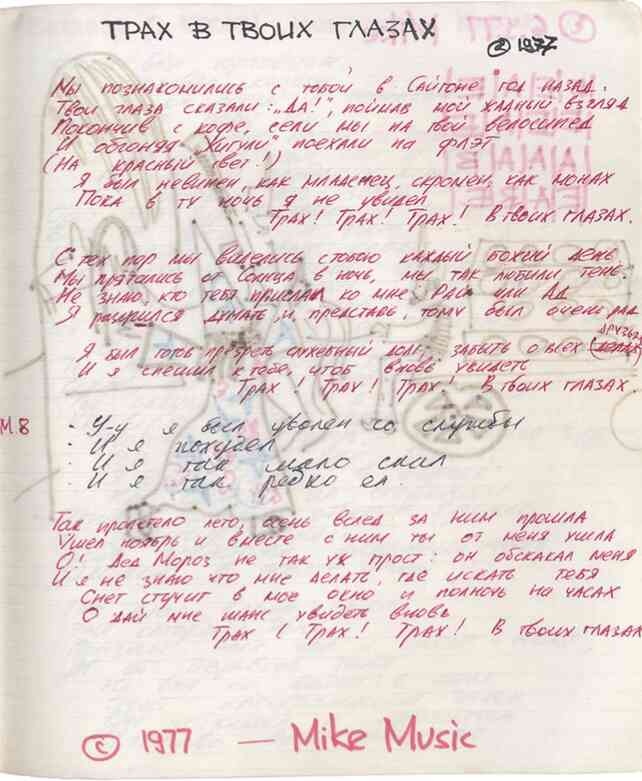 ТРАХ В ТВОИХ ГЛАЗАХ
© 1977
Мы познакомились с тобой в Сайгоне год назад.
Твои глаза сказали: „ДА!", поймав мой жадный взгляд
Покончив с кофе, сели мы на твой велосипед
И обгоняя „Жигули" поехали на флэт
(НА красный свет!)
Я был невинен, как младенец, скромен, как монах
Пока в ту ночь я не увидел
Трах! Трах! Трах! В твоих глазах.
С тех пор мы виделись с тобою каждый божий день
Мы прятались от Солнца в ночь, мы так любили тень
Не знаю, кто тебя прислал ко мне, Рай или Ад
Я разучился думать, и, представь, тому был очень рад
Я был готов презреть служебный долг, забыть о всех друзьях
И я спешил к тебе, чтоб вновь увидеть
Трах! Трах! Трах! В твоих глазах.
М8
У-у я был уволен со службы
И я похудел
И я так мало спал
И я так редко ел.
Так пролетело лето, осень вслед за ним прошла
Ушел ноябрь и вместе с ним ты от меня ушла
О! Дед Мороз не так уж прост: он обскакал меня
И я не знаю что мне делать, где искать тебя
Снег стучит в мое окно и полночь на часах
О дай мне шанс увидеть вновь
Трах! Трах! Трах! В твоих глазах
© 1977 — Mike Music